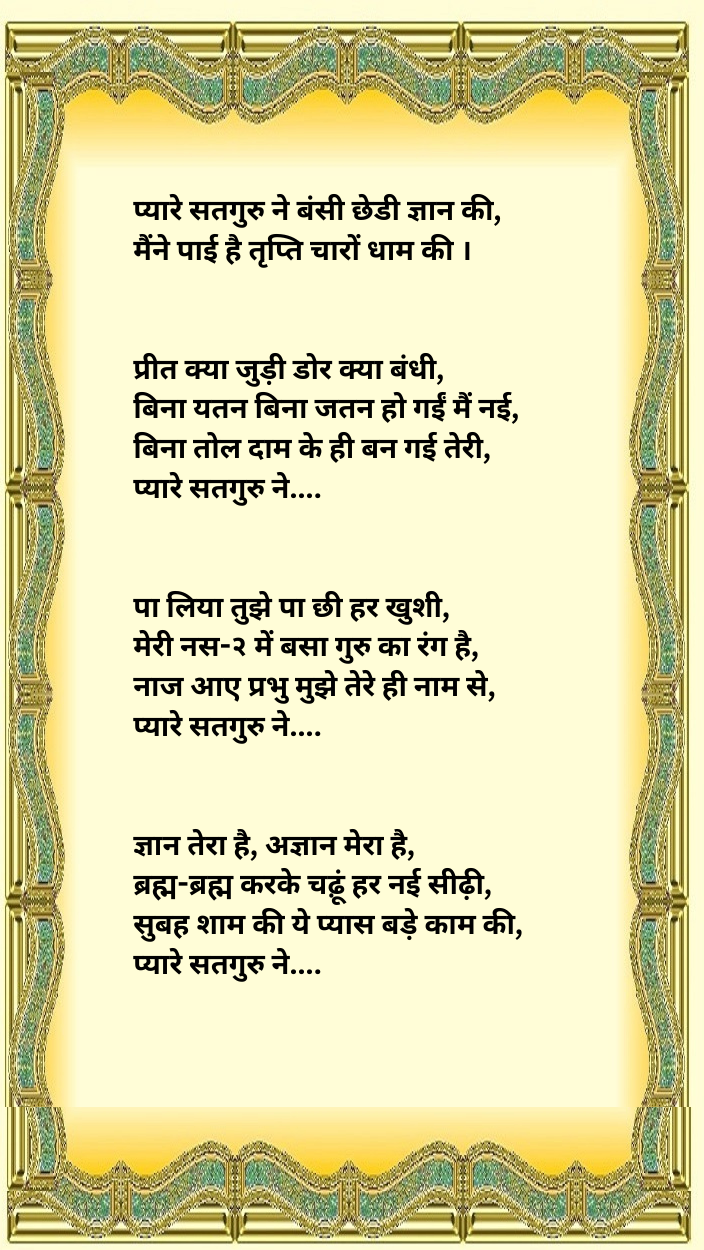 प्यारे सतगुरु ने बंसी छेडी ज्ञान की,
मैंने पाई है तृप्ति चारों धाम की ।
प्रीत क्या जुड़ी डोर क्या बंधी,
बिना यतन बिना जतन हो गईं मैं नई,
बिना तोल दाम के ही बन गई तेरी,
प्यारे सतगुरु ने....
पा लिया तुझे पा छी हर खुशी,
मेरी नस-२ में बसा गुरु का रंग है,
नाज आए प्रभु मुझे तेरे ही नाम से,
प्यारे सतगुरु ने....
ज्ञान तेरा है, अज्ञान मेरा है,
ब्रह्म-ब्रह्म करके चढ़ूं हर नई सीढ़ी,
सुबह शाम की ये प्यास बड़े काम की,
प्यारे सतगुरु ने....